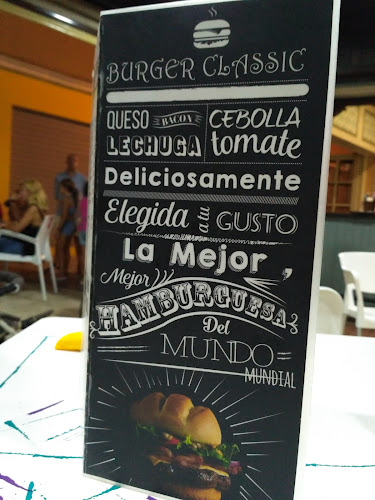 BURGER CLASSIC
QUESO BACON CEBOLLA
LECHUGA tomate
Deliciosamente
Elegida a tu GUSTO
La Mejor,
Mejor
HAMBURGUESA
Del
MUNDO
MUNDIAL